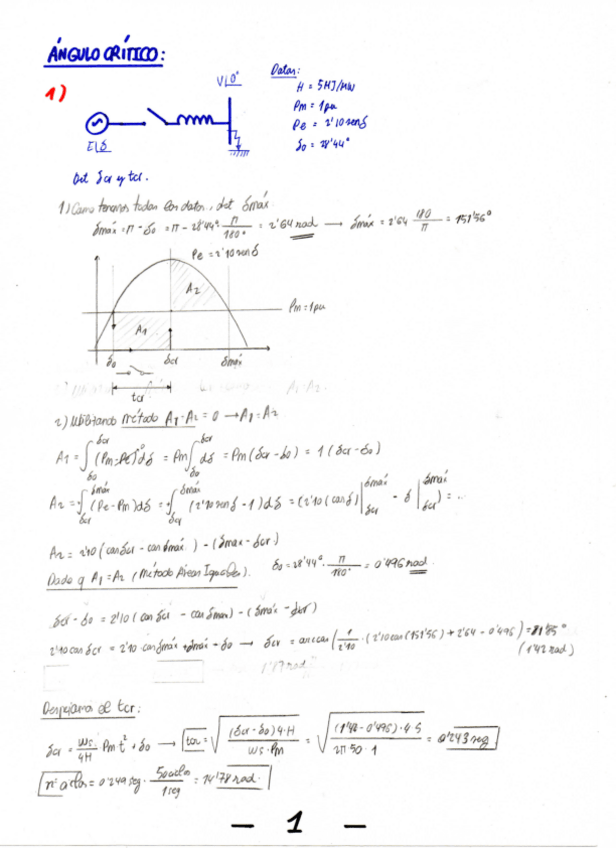 ÁNGULO CRÍTICO:
1)
V∠0°
E∠δ
Datos:
H = 5MJ/MW
Pm = 1pu
Pe = 2'10senδ
δ0 = 28'44°
Det δcr y tcr.
1) Como tenemos todos los datos, det δmáx.
δmáx = π - δ0 = π - 28'44° · π/180° = 2'64 rad → δmáx = 2'64 180/π = 151'56°
Pe = 2'10senδ
A2
Pm = 1pu
A1
δ0 δcr δmáx
tcr
2) Utilizando método A1-A2 = 0 → A1 = A2
A1 = ∫δ0^δcr (Pm - Pe)^0 dδ = Pm ∫δ0^δcr dδ = Pm (δcr - δ0) = 1 (δcr - δ0)
A2 = ∫δcr^δmáx (Pe - Pm) dδ = ∫δcr^δmáx (2'10 senδ - 1) dδ = (2'10 (cosδ)|δcr^δmáx - δ|δcr^δmáx) = ...
A2 = 2'10 (cosδcr - cosδmáx) - (δmáx - δcr)
Dado q A1 = A2 (Método Áreas Iguales). δ0 = 28'44° · π/180° = 0'496 rad
δcr - δ0 = 2'10 (cosδcr - cosδmáx) - (δmáx - δcr)
2'10 cosδcr = 2'10 · cosδmáx + δmáx - δ0 → δcr = arccos(1/2'10 · (2'10 cos(151'56) + 2'64 - 0'496) = 81'85°
(1'42 rad)
Despejamos el tcr:
δcr = ws/4H Pm t² + δ0 → tcr = √((δcr - δ0) 4·H / ws · Pm) = √((1'42 - 0'496) · 4·5 / 2π·50·1) = 0'243 seg
nº ciclos = 0'243 seg · 50 ciclos/1 seg =
rad.
- 1 -